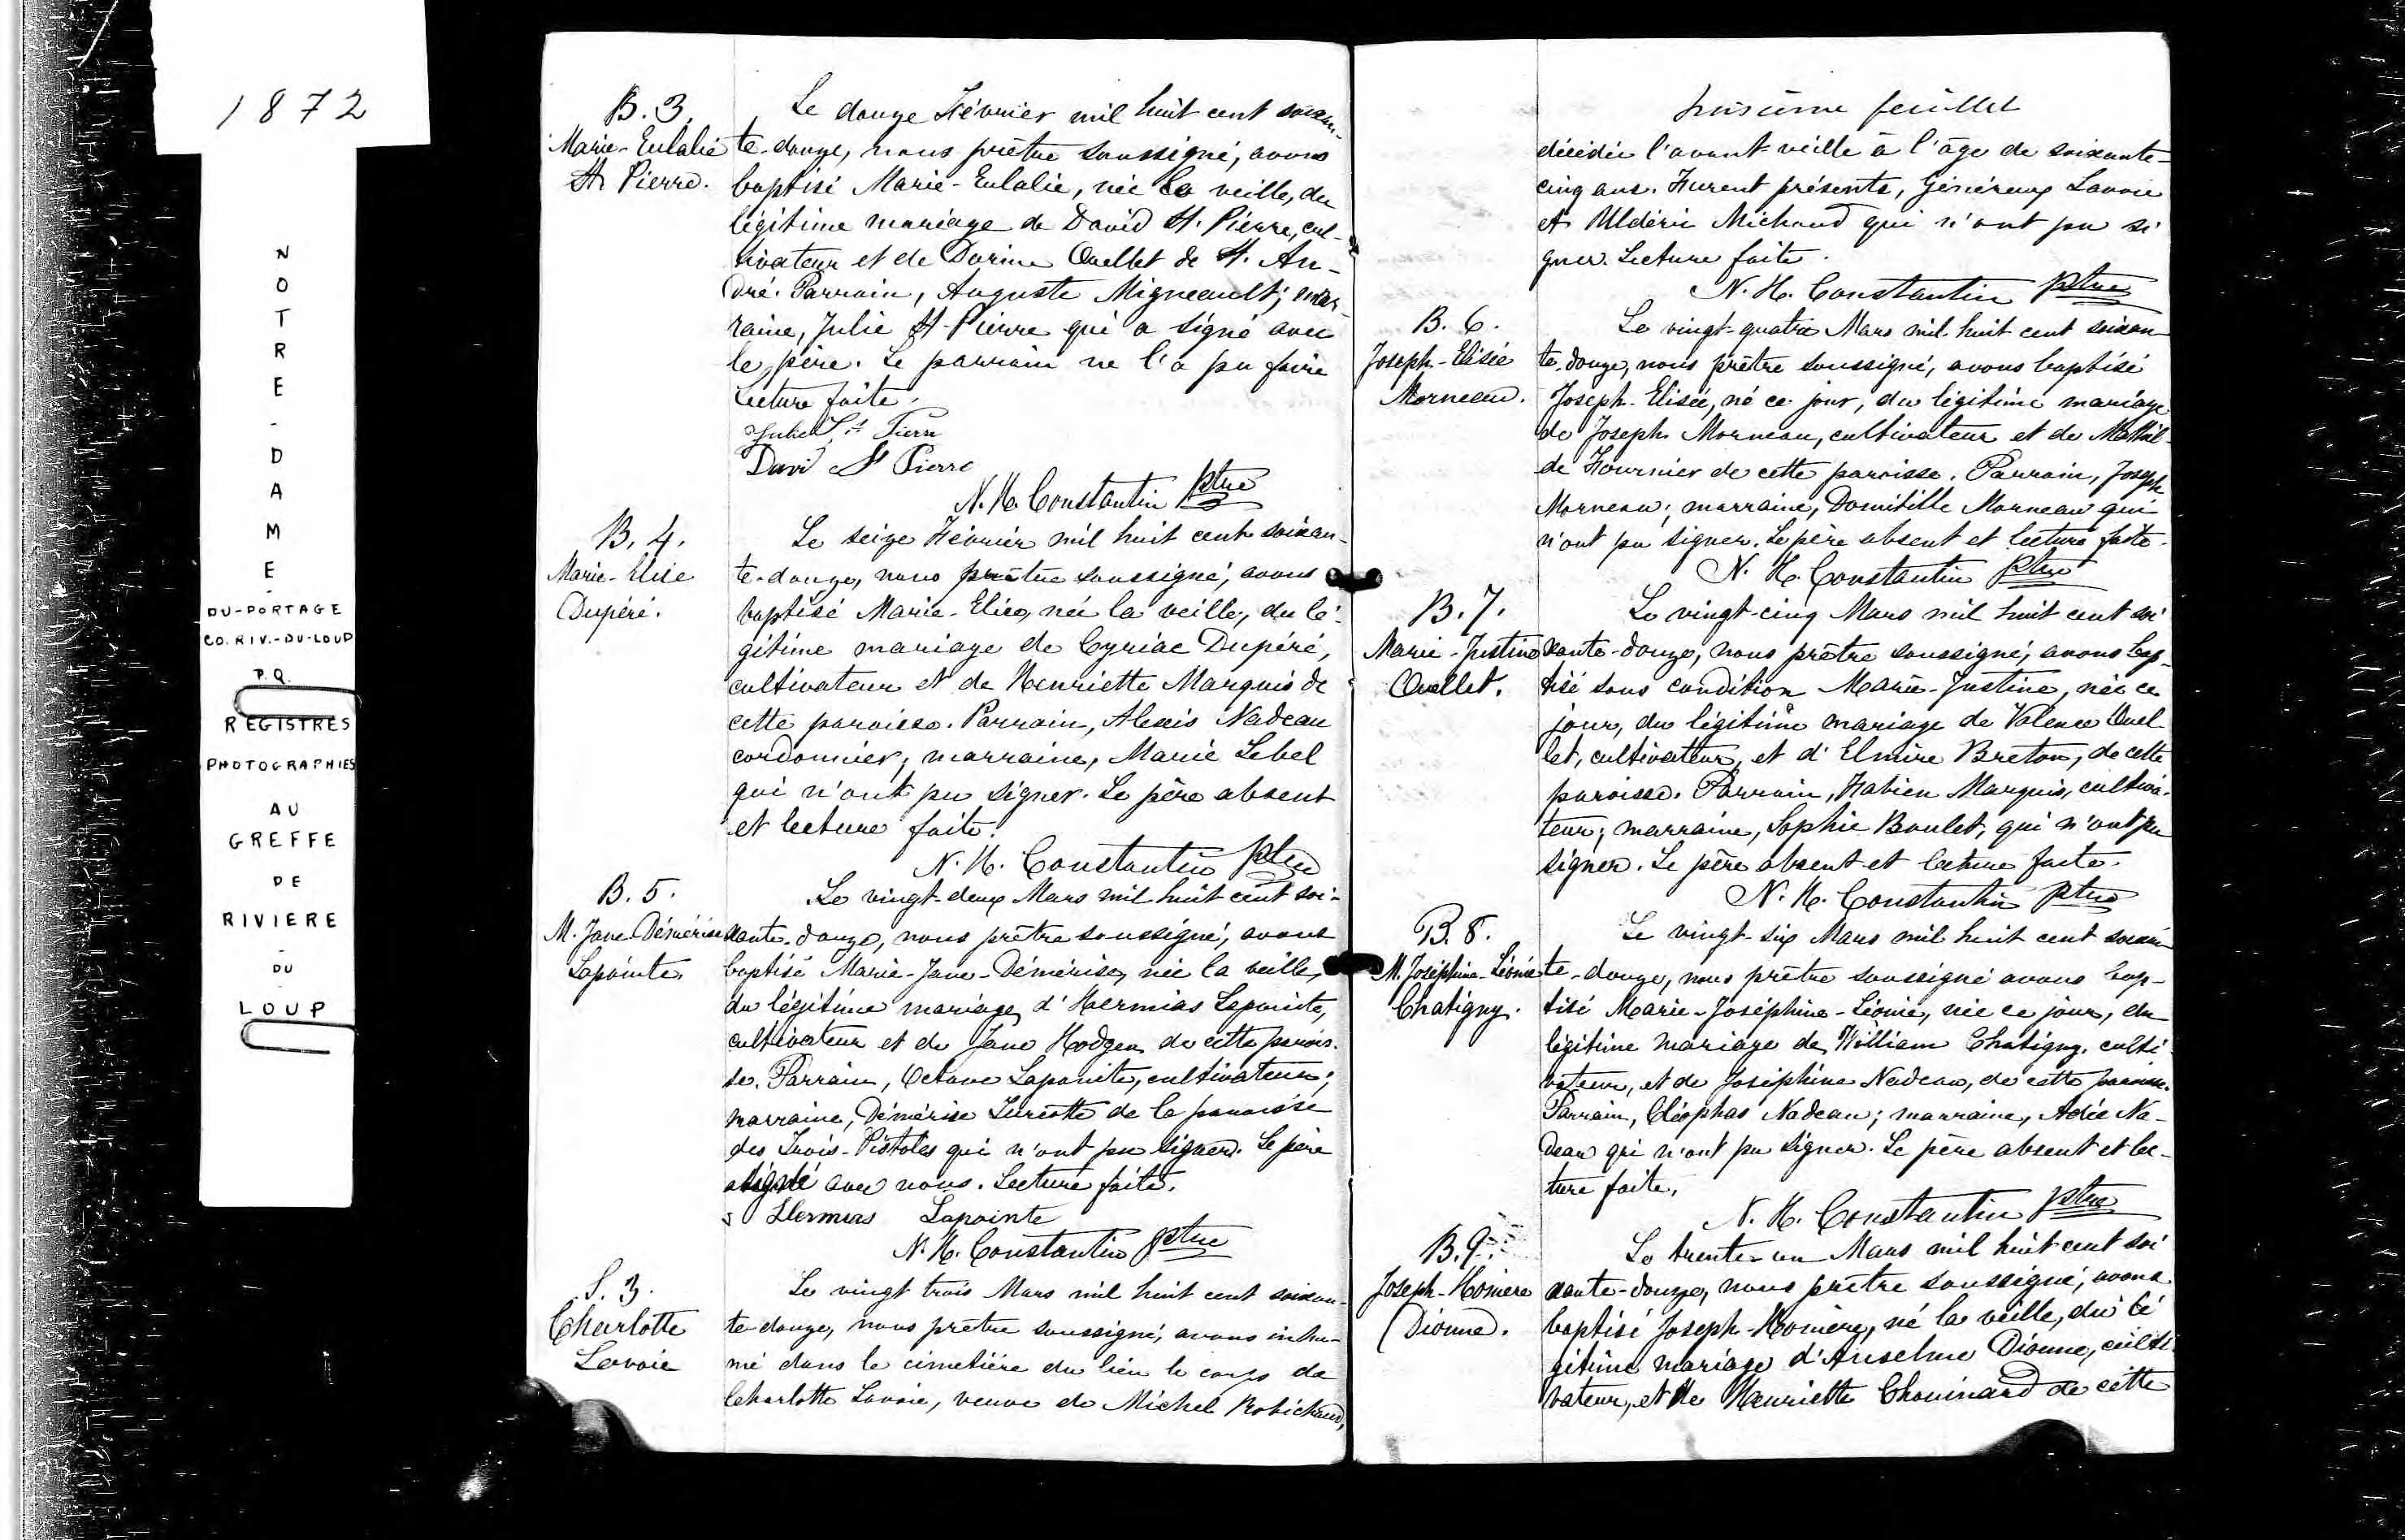 1872
NOTRE-DAME-
DU-PORTAGE
CO. RIV.-DU-LOUP
P.Q.
REGISTRES
PHOTOGRAPHIES
AU
GREFFE
DE
RIVIERE
-
DU
LOUP
B. 3.
Marie-Eulalie
St Pierre.
Le douze Février mil huit cent soixan-
te-douze, nous prêtre soussigné, avons
baptisé Marie-Eulalie, née la veille, du
légitime mariage de David St. Pierre, cul-
tivateur et de Darine Ouellet de St. An-
dré. Parrain, Auguste Migneault; mar-
raine, Julie St-Pierre qui a signé avec
le père. Le parrain ne l'a pu faire
Lecture faite.
Julie St Pierre
Davi St Pierre
N. H. Constantin Ptre
B. 4.
Marie-Elise
Dupéré.
Le seize Février mil huit cent soixan-
te-douze, nous prêtre soussigné, avons
baptisé Marie-Elise, née la veille, du lé-
gitime mariage de Cyriac Dupéré,
cultivateur et de Henriette Marquis de
cette paroisse. Parrain, Alexis Nadeau
cordonnier; marraine, Marie Lebel
qui n'ont pu signer. Le père absent
et lecture faite.
N. H. Constantin Ptre
B. 5.
M. Jane Démérise
Lapointe
Le vingt-deux Mars mil huit cent soi-
xante-douze, nous prêtre soussigné, avons
baptisé Marie-Jane-Démérise, née la veille,
du légitime mariage d'Hermias Lapointe,
cultivateur et de Jane Hodgen de cette parois-
se. Parrain, Octave Lapointe, cultivateur;
marraine, Démérise Turcotte de la paroisse
des Trois-Pistoles qui n'ont pu signer. Le père
a signé avec nous. Lecture faite.
Hermias Lapointe
N. H. Constantin Ptre
S. 3.
Charlotte
Lavoie
Le vingt trois Mars mil huit cent soixan-
te-douze, nous prêtre soussigné, avons inhu-
mé dans le cimetière du lieu le corps de
Charlotte Lavoie, veuve de Michel Robichaud,
feuillet
décédée l'avant-veille à l'âge de soixante-
cinq ans. Furent présents, Généreux Lavoie
et Uldéric Michaud qui n'ont pu si
gner. Lecture faite.
N. H. Constantin Ptre
B. 6.
Joseph-Elisée
Morneau.
Le vingt-quatre Mars mil huit cent soixan
te-douze, nous prêtre soussigné, avons baptisé
Joseph-Elisée, né ce jour, du légitime mariage
de Joseph Morneau, cultivateur et de Mathil-
de Fournier de cette paroisse. Parrain, Joseph
Morneau; marraine, Domitille Morneau qui
n'ont pu signer. Le père absent et lecture faite.
N. H. Constantin Ptre
B. 7.
Marie-Justine
Ouellet.
Le vingt-cinq Mars mil huit cent soi
xante-douze, nous prêtre soussigné, avons bap-
tisé sous condition Marie-Justine, née ce
jour, du légitime mariage de Valence Ouel
let, cultivateur, et d'Elmire Breton, de cette
paroisse. Parrain, Fabien Marquis, cultiva-
teur; marraine, Sophie Boulet, qui n'ont pu
signer. Le père absent et lecture faite.
N. H. Constantin Ptre
B. 8.
M. Joséphine-Léonie
Chatigny.
Le vingt-six Mars mil huit cent soixan
te-douze, nous prêtre soussigné avons bap-
tisé Marie-Joséphine-Léonie, née ce jour, du
légitime mariage de William Chatigny, culti-
vateur, et de Joséphine Nadeau, de cette paroisse.
Parrain, Cléophas Nadeau; marraine, Adée Na-
deau qui n'ont pu signer. Le père absent et lec-
ture faite.
N. H. Constantin Ptre
B. 9.
Joseph-Homère
Dionne.
Le trente-un Mars mil huit cent soi
xante-douze, nous prêtre soussigné, avons
baptisé Joseph-Homère, né la veille, du lé
gitime mariage d'Anselme Dionne, culti-
vateur, et de Henriette Chouinard de cette